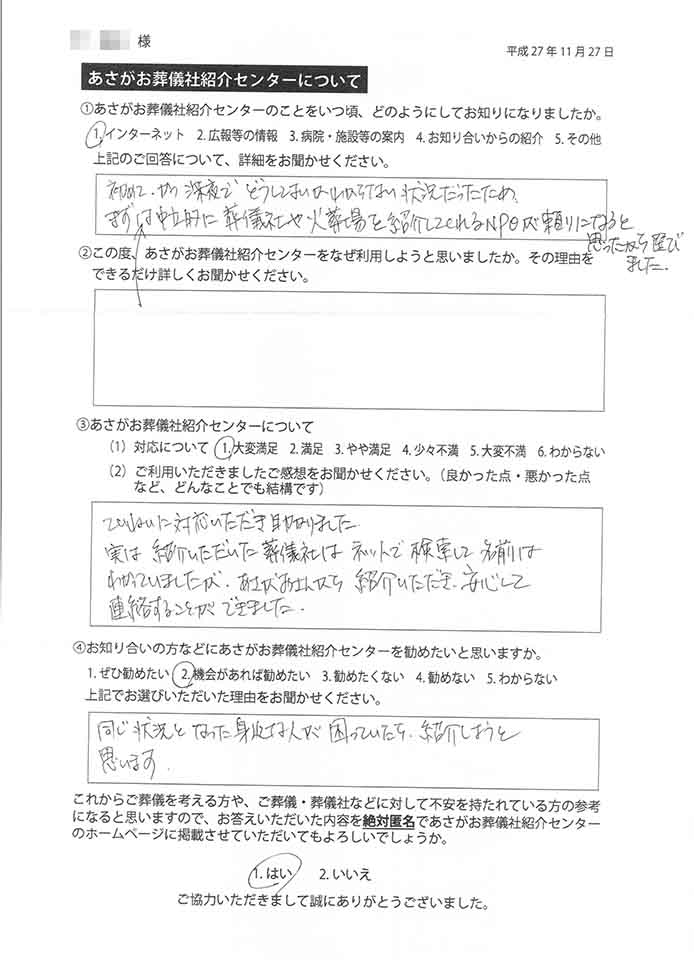 様
平成27年11月27日
あさがお葬儀社紹介センターについて
①あさがお葬儀社紹介センターのことをいつ頃、どのようにしてお知りになりましたか。
1.インターネット 2.広報等の情報 3.病院・施設等の案内 4.お知り合いからの紹介 5.その他
上記のご回答について、詳細をお聞かせください。
初めて、かつ深夜で どうしてよいかわからない状況だったため、
まずは中立的に 葬儀社や火葬場を紹介してくれるNPOが頼りになると
思ったから選び
ました.
②この度、あさがお葬儀社紹介センターをなぜ利用しようと思いましたか。その理由を
できるだけ詳しくお聞かせください。
③あさがお葬儀社紹介センターについて
(1)対応について 1.大変満足 2.満足 3.やや満足 4.少々不満 5.大変不満 6.わからない
(2)ご利用いただきましたご感想をお聞かせください。(良かった点・悪かった点
など、どんなことでも結構です)
ていねいに対応いただき助かりました
実は 紹介いただいた葬儀社は ネットで 検索して 名前は
わかっていましたが、あさがおさんから 紹介いただき、安心して
連絡することが できました.
④お知り合いの方などにあさがお葬儀社紹介センターを勧めたいと思いますか。
1.ぜひ勧めたい 2.機会があれば勧めたい 3.勧めたくない 4.勧めない 5.わからない
上記でお選びいただいた理由をお聞かせください。
同じ状況と なった身近な人が 困っていたら、紹介しようと
思います.
これからご葬儀を考える方や、ご葬儀・葬儀社などに対して不安を持たれている方の参考
になると思いますので、お答えいただいた内容を絶対匿名であさがお葬儀社紹介センター
のホームページに掲載させていただいてもよろしいでしょうか。
1.はい 2.いいえ
ご協力いただきまして誠にありがとうございました。